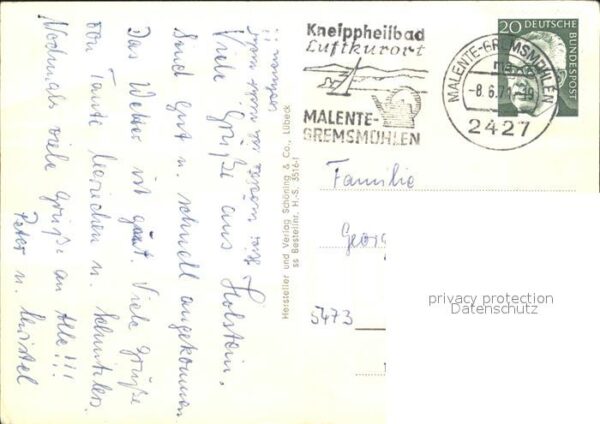 Viele Grüße aus Holstein,
Sind gut u. schnell angekommen
Das Wetter ist gut. Viele Grüße
von Tante u.
Nochmals viele Grüße an Alle!!!
Peter u. Christel
Hersteller und Verlag Schöning & Co., Lübeck
ss Bestellnr. H.-S. 3516-1
Kneippheilbad
Luftkurort
MALENTE-
GREMSMÜHLEN
MALENTE-GREMSMÜHLEN
-8.6.71
2427
20 DEUTSCHE
BUNDESPOST
Familie
Georg
5473
privacy protection
Datenschutz